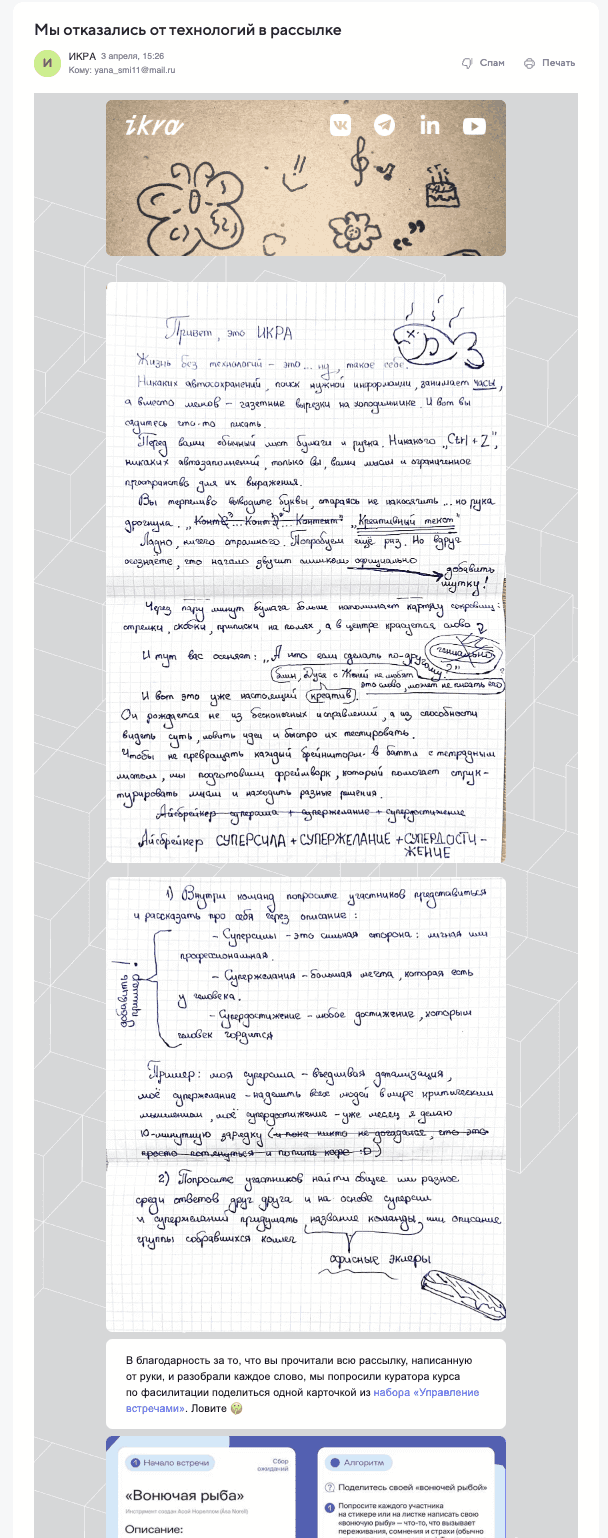 Мы отказались от технологий в рассылке
И
ИКРА 3 апреля, 15:26
Кому: yana_smi11@mail.ru
Спам
Печать
ikra
Привет, это ИКРА
Жизнь без технологий – это... ну, такое себе.
Никаких автосохранений, поиск нужной информации, занимает часы,
а вместо мемов – газетные вырезки на холодильнике. И вот вы
садитесь что-то писать.
Перед вами обычный лист бумаги и ручка. Никакого „Ctrl + Z",
никаких автозаполнений, только вы, ваши мысли и ограниченное
пространство для их выражения.
Вы терпеливо выводите буквы, стараясь не накосячить ... но рука
дрогнула. „Конт... Конт... Контент" „Креативный текст"
Ладно, ничего страшного. Попробуем ещё раз. Но вдруг
осознаёте, что начало звучит слишком официально
добавить
шутку!
Через пару минут бумага больше напоминает карту сокровищ:
стрелки, скобки, приписки на полях, а в центре красуется слово
гениально
И тут вас осеняет: „А что если сделать по-другому?"
блин, Дуся с Женей не любят
это слово, может не писать его
И вот это уже настоящий креатив.
Он рождается не из бесконечных исправлений, а из способности
видеть суть, ловить идеи и быстро их тестировать.
Чтобы не превращать каждый брейншторм в баттл с тетрадным
листом, мы подготовили фреймворк, который помогает струк-
турировать мысли и находить разные решения.
Айсбрейкер суперсила + супержелание + супердостижение
Айсбрейкер СУПЕРСИЛА + СУПЕРЖЕЛАНИЕ + СУПЕРДОСТИ-
ЖЕНИЕ
1) Внутри команд попросите участников представиться
и рассказать про себя через описание:
– Суперсилы – это сильная сторона: личная или
профессиональная.
– Супержелания – большая мечта, которая есть
у человека.
– Супердостижение – любое достижение, которым
человек гордится
добавить
пример!
Пример: моя суперсила – въедливая детализация,
моё супержелание – наделить всех людей в мире критическим
мышлением, моё супердостижение – уже месяц я делаю
10-минутную зарядку (и пока никто не догадался, что это
просто потянуться и попить кофе :D)
2) Попросите участников найти общее или разное
среди ответов друг друга и на основе суперсил
и супержеланий придумать название команды, или описание
группы собравшихся коллег
офисные эклеры
В благодарность за то, что вы прочитали всю рассылку, написанную
от руки, и разобрали каждое слово, мы попросили куратора курса
по фасилитации поделиться одной карточкой из набора «Управление
встречами». Ловите
1 Начало встречи
Сбор
ожиданий
«Вонючая рыба»
Описание:
Алгоритм
Поделитесь своей «вонючей рыбой»
1 Попросите каждого участника
на стикере или на листке написать свою
«вонючую рыбу» — что-то, что вызывает
переживания, сомнения и страхи (обычно